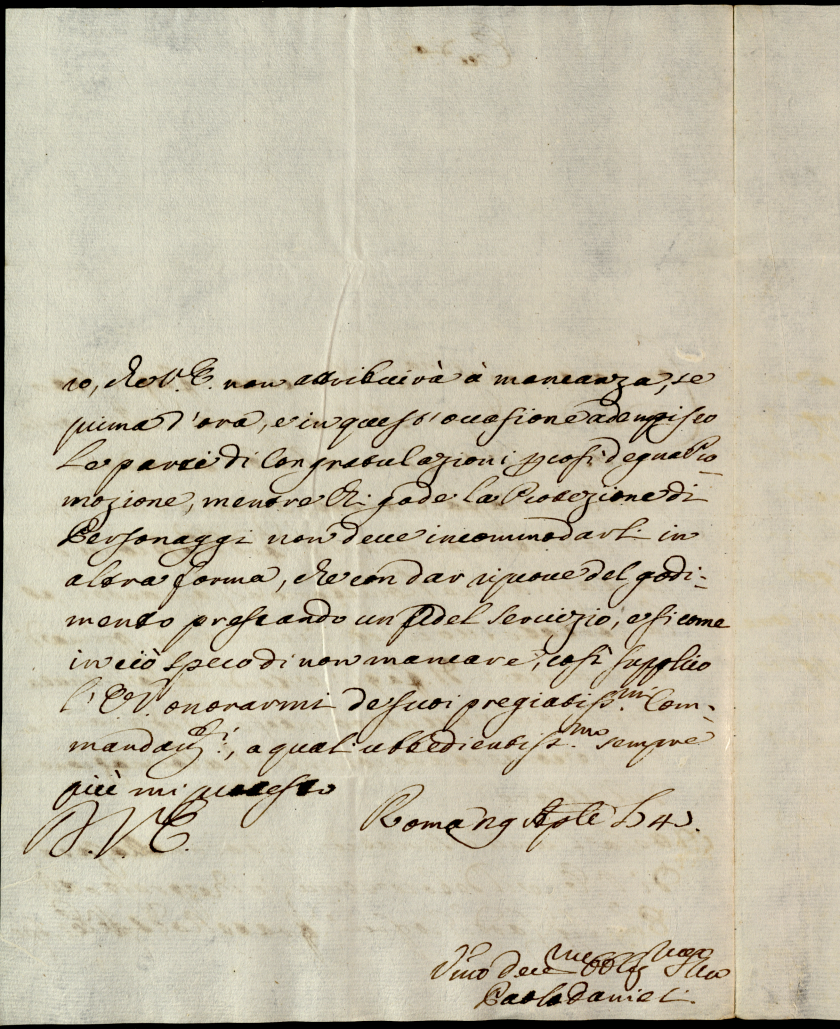 ro, che V. E. non attribuirà à mancanza, se
prima d'ora, e in quest'occasione adempisco
le parti di Congratulazioni p così degna Pro=
mozione, mentre chi gode la Protezione di
Personaggi non deve incommodarli in
altra forma, che con dar riprove del godi=
mento prestando un fidel servizio, e si come
in ciò spero di non mancare, così supplico
l'E. V. onorarmi de suoi pregiatiss.mi Com=
mandam.ti, a quali ubbedientiss.mo sempre
più mi protesto
D. V. E. Roma
Paolo Danieli